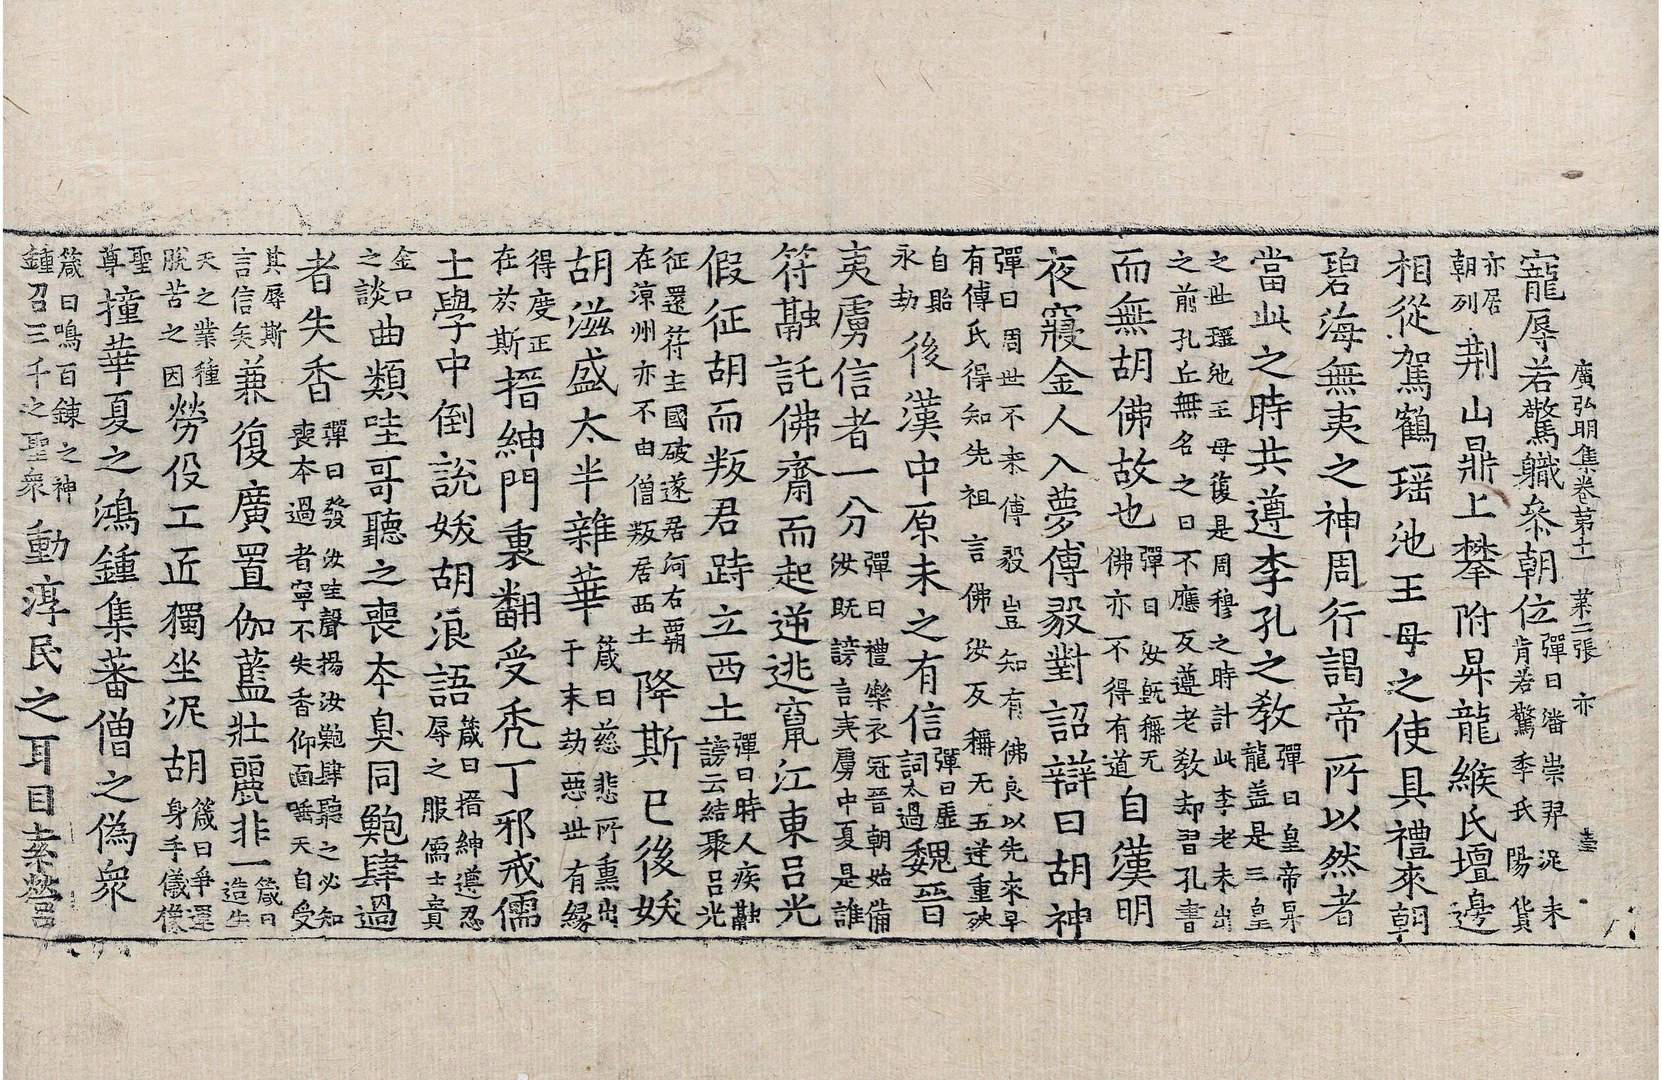 廣弘明集卷第十一 第二張 亦
寵辱若驚職叅朝位彈曰潘崇羿浞未肯若驚季氏陽貨
亦居朝列荆山鼎上攀附昇龍緱氏壇邊
相從駕鶴瑶池王母之使具禮來朝
碧海無夷之神周行謁帝所以然者
當此之時共遵李孔之教彈曰皇帝昇龍蓋是三皇
之世瑶池王母復是周穆之時計此李老未出之前孔丘無名之日不應反遵老教却習孔書
而無胡佛故也彈曰汝旣稱无佛亦不得有道自漢明
夜寢金人入夢傅毅對詔辯曰胡神
彈曰周世不未傅毅豈知有佛良以先來早有傅氏得知先祖言佛汝反稱无五逆重殃
自貽永劫後漢中原未之有信彈曰虛詞太過魏晉
夷虜信者一分彈曰禮樂衣冠晉朝始備汝既謗言夷虜中夏是誰
符融託佛齋而起逆逃竄江東呂光
假征胡而叛君跱立西土彈曰時人疾融謗云結聚呂光
征還符主國破遂居河右覇在涼州亦不由僧叛居西土降斯已後妖
胡滋盛太半雜華箴曰慈悲所熏出于末劫惡世有緣
得度正在於斯搢紳門裏翻受禿丁邪戒儒
士學中倒說妖胡浪語箴曰搢紳遵忍辱之服儒士賁
金口之談曲類哇哥聽之喪本臭同鮑肆過
者失香彈曰發汝哇聲揚汝鮑肆聽之必知喪本過者寧不失香仰面唾天自受
其辱斯言信矣兼復廣置伽藍壯麗非一箴曰造生
天之業種脫苦之因勞役工近獨坐泥胡箴曰爭運身手儀樣
聖尊撞華夏之鴻鍾集蕃僧之偽衆
箴曰鳴百鍊之神鍾召三千之聖衆動淳民之耳目索營